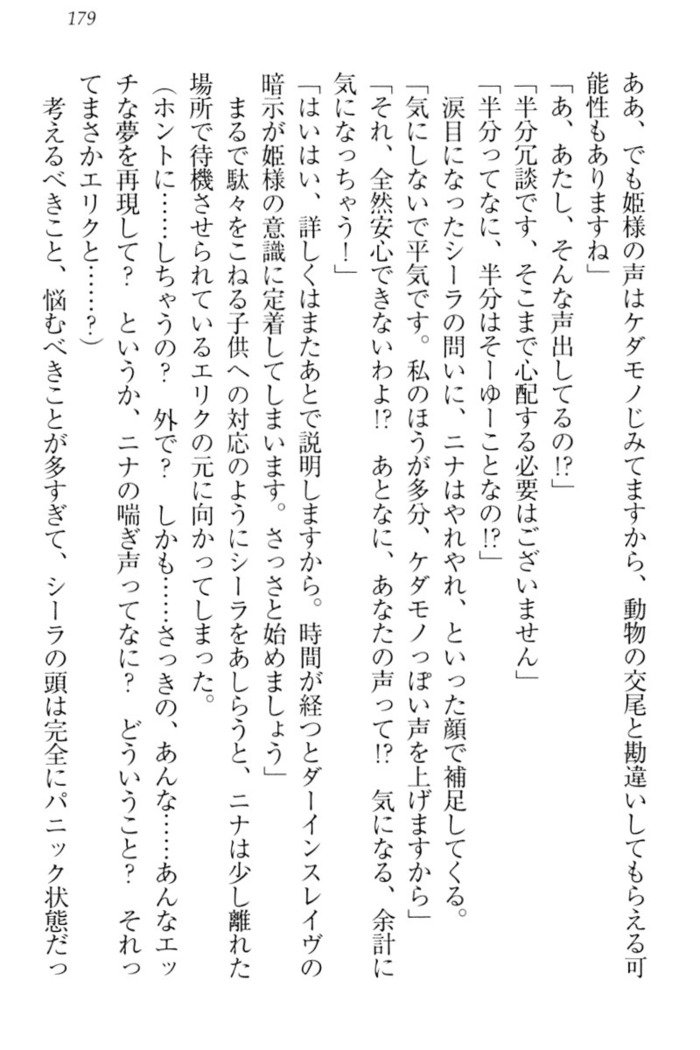 179
ああ、でも姫様の声はケダモノじみてますから、動物の交尾と勘違いしてもらえる可
能性もありますね」
「あ、あたし、そんな声出してるの!?」
「半分冗談です、そこまで心配する必要はございません」
「半分ってなに、半分はそーゆーことなの!?」
涙目になったシーラの問いに、ニナはやれやれ、といった顔で補足してくる。
「気にしないで平気です。私のほうが多分、ケダモノっぽい声を上げますから」
「それ、全然安心できないわよ!?　あとなに、あなたの声って!?　気になる、余計に
気になっちゃう！」
「はいはい、詳しくはまたあとで説明しますから。時間が経つとダーインスレイヴの
暗示が姫様の意識に定着してしまいます。さっさと始めましょう」
まるで駄々をこねる子供への対応のようにシーラをあしらうと、ニナは少し離れた
場所で待機させられているエリクの元に向かってしまった。
（ホントに……しちゃうの？　外で？　しかも……さっきの、あんな……あんなエッ
チな夢を再現して？　というか、ニナの喘ぎ声ってなに？　どういうこと？　それっ
てまさかエリクと……？）
考えるべきこと、悩むべきことが多すぎて、シーラの頭は完全にパニック状態だっ